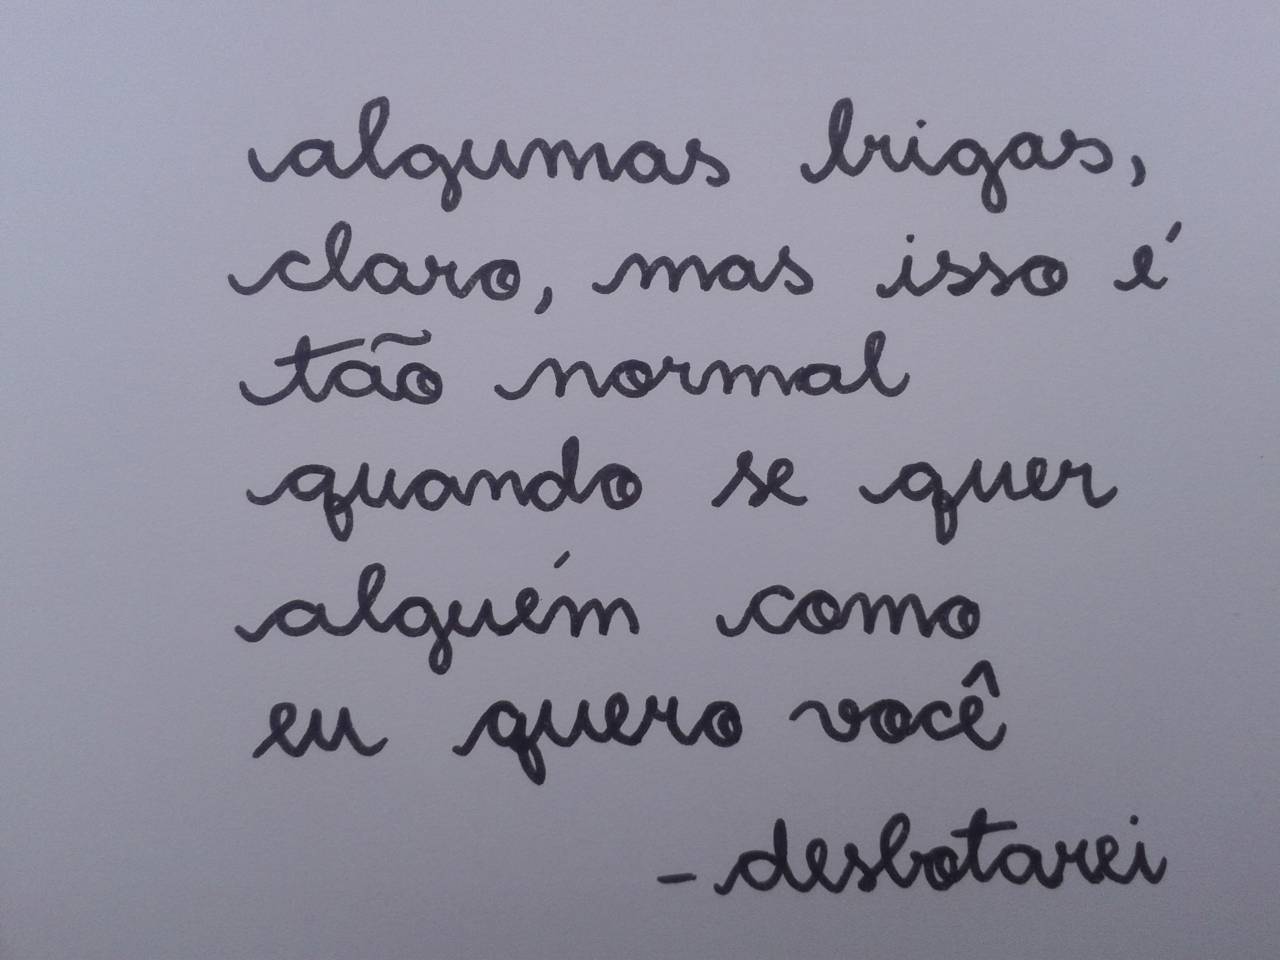 algumas brigas,
claro, mas isso é
tão normal
quando se quer
alguém como
eu quero você
- desbotarei